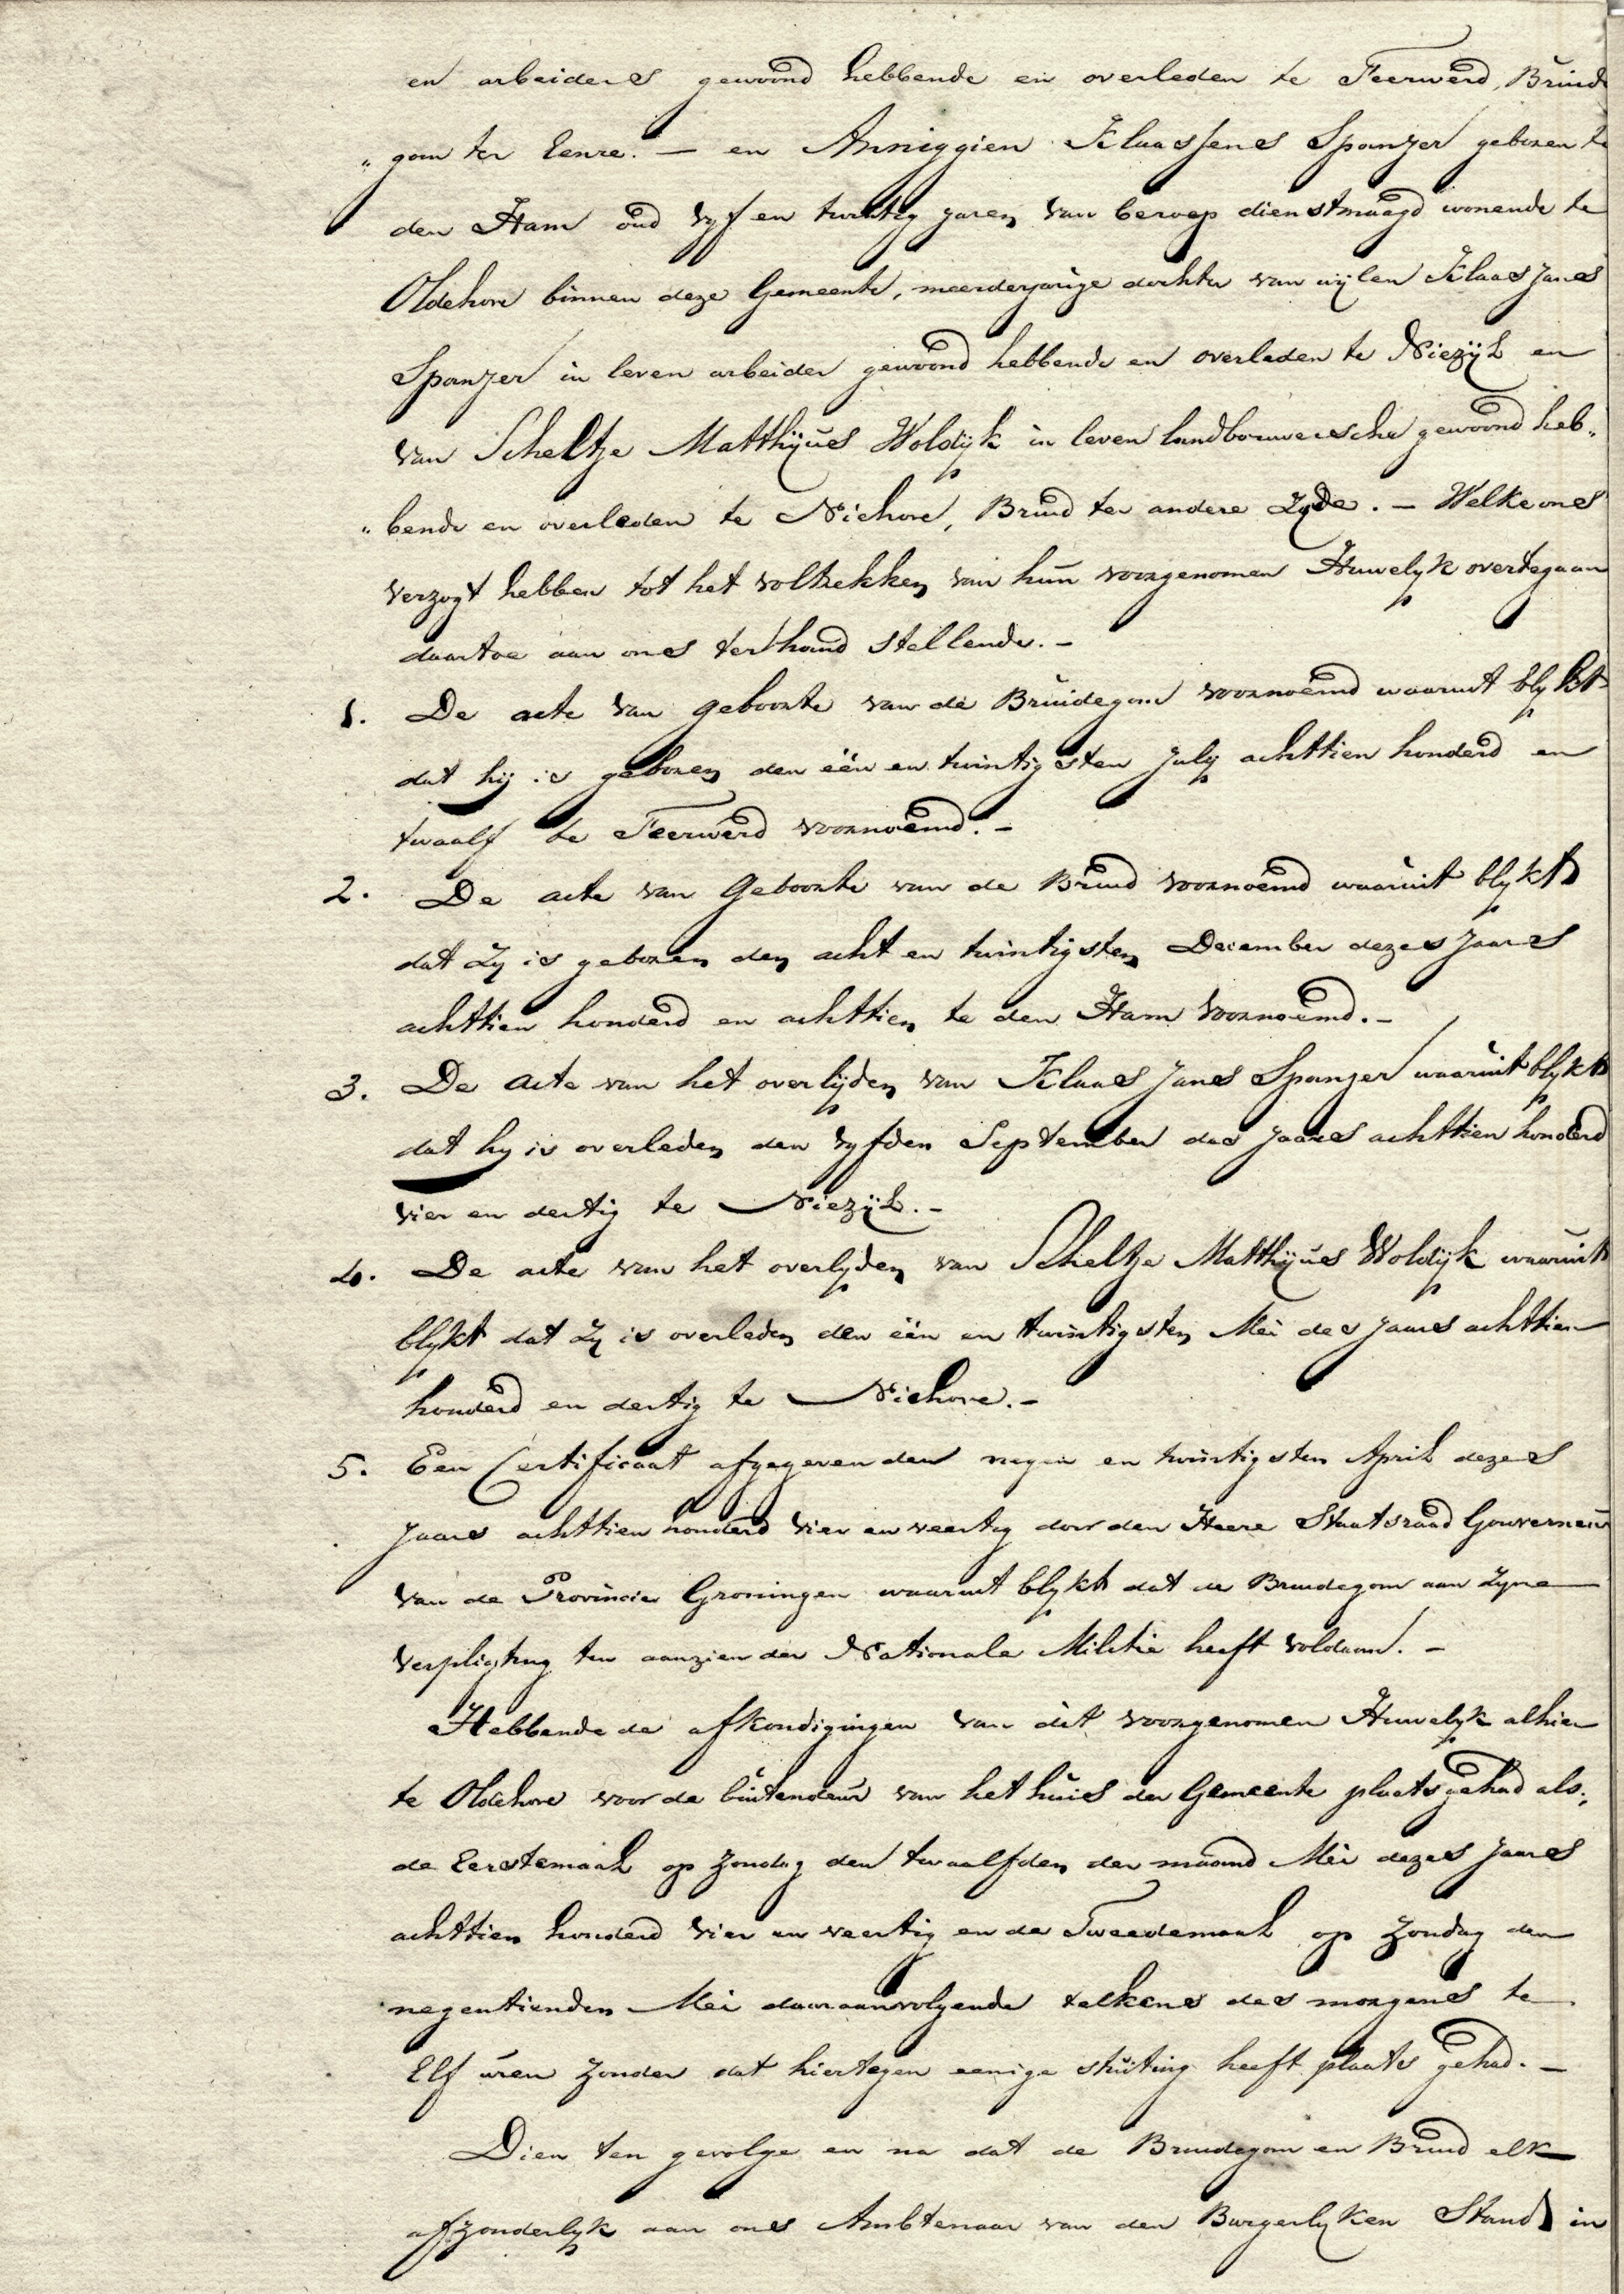 en arbeideres gewoond hebbende en overleden te Feerwerd, Bruide
„gom ter Eenre. — en Anniggien Klaassens Spanjer geboren te
den Ham oud vyf en twintig jaren van beroep dienstmaagd wonende te
Oldehove binnen deze Gemeente, meerderjarige dochter van wijlen Klaas Jans
Spanjer in leven arbeider gewoond hebbende en overleden te Niezijl en
van Scheltje Matthijues Woldijk in leven landbouwersche gewoond heb„
„bende en overleden te Niehove, Bruid ter andere Zyde. — Welke ons
verzogt hebben tot het voltrekken van hun voorgenomen Huwelyk overtegaan
daartoe aan ons ter hand stellende. —
1. De acte van geboorte van de Bruidegom voornoemd waaruit blykt
dat hij is geboren den één en twintigsten July achttien honderd en
twaalf te Feerwerd voornoemd. —
2. De acte van Geboorte van de Bruid voornoemd waaruit blykt
dat zy is geboren den acht en twintigsten December dezes Jaars
achttien honderd en achttien te den Ham voornoemd. —
3. De acte van het overlijden van Klaas Jans Spanjer waaruit blykt
dat hy is overleden den vyfden September des jaars achttien honderd
vier en dertig te Niezijl. —
4. De acte van het overlyden van Scheltje Matthijues Woldijk waaruit
blykt dat zy is overleden den één en twintigsten Mei des jaars achttien
honderd en dertig te Niehove. —
5. Een Certificaat afgegeven den negen en twintigsten April dezes
Jaars achttien honderd vier en veertig door den Heere Staatsraad Gouverneur
van de Provincie Groningen waaruit blykt dat de Bruidegom aan zyne
verpligting ten aanzien der Nationale Militie heeft voldaan. —
Hebbende de afkondigingen van dit voorgenomen Huwelyk alhier
te Oldehove voor de buitendeur van het huis der Gemeente plaats gehad als;
de Eerstemaal op Zondag den twaalfden der maand Mei dezes Jaars
achttien honderd vier en veertig en de Tweedemaal op Zondag den
negentienden Mei daaraanvolgende telkens des morgens te
Elf uren zonder dat hiertegen eenige stuiting heeft plaats gehad. —
Dien ten gevolge en na dat de Bruidegom en Bruid elk
afzonderlyk aan ons Ambtenaar van den Burgerlyken Stand in